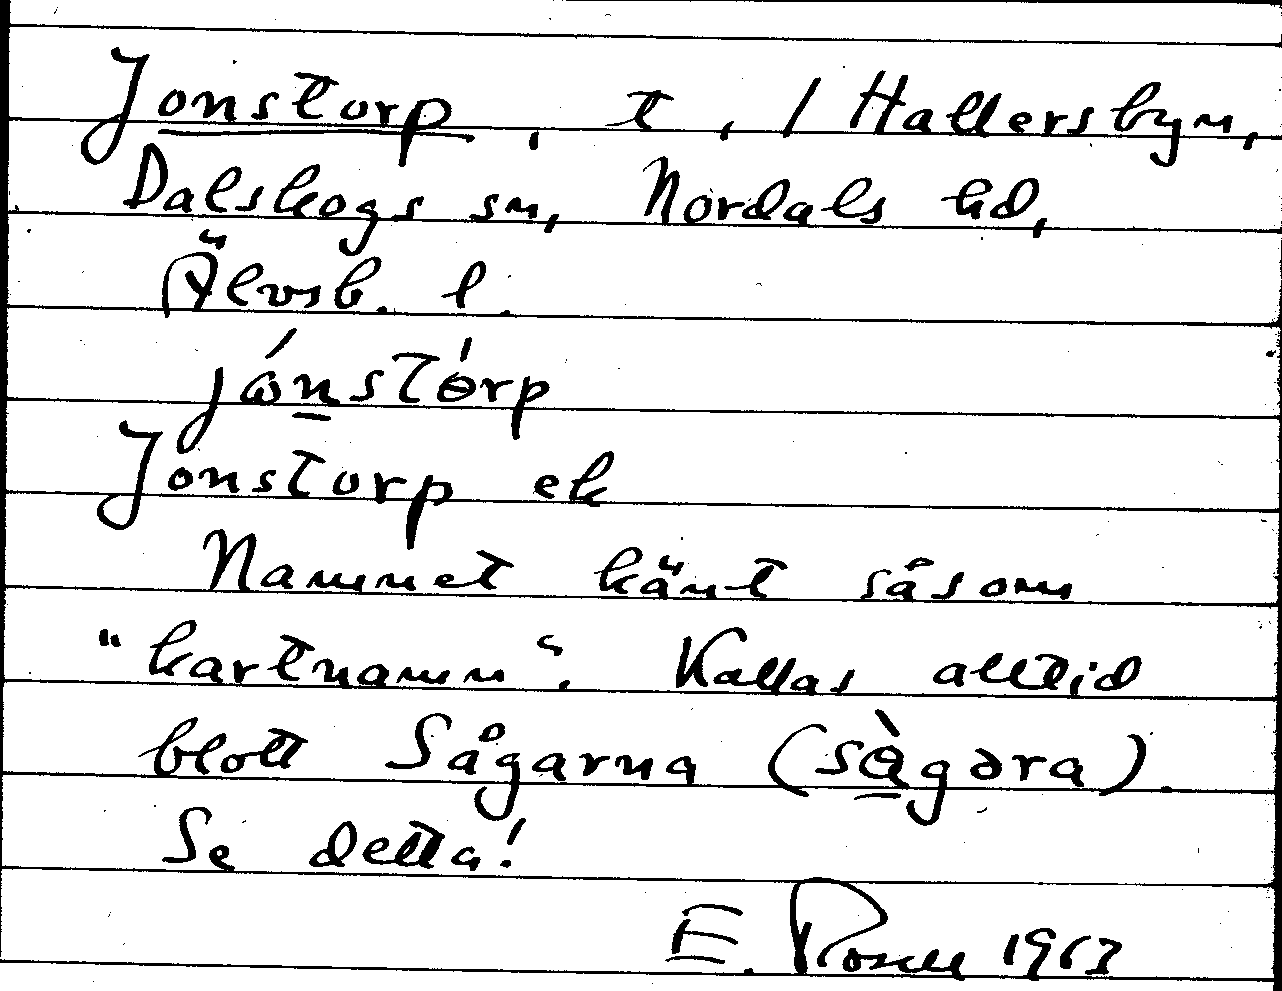 Jonstorp, t, / Hallersbyn,
Dalskogs sn, Nordals hd,
Älvsb. l.
jónstórp
Jonstorp ek
Namnet känt såsom
"kartnamn". Kallas alltid
blott Sågarna (sàgəra).
Se detta!
E. Rosell 1963